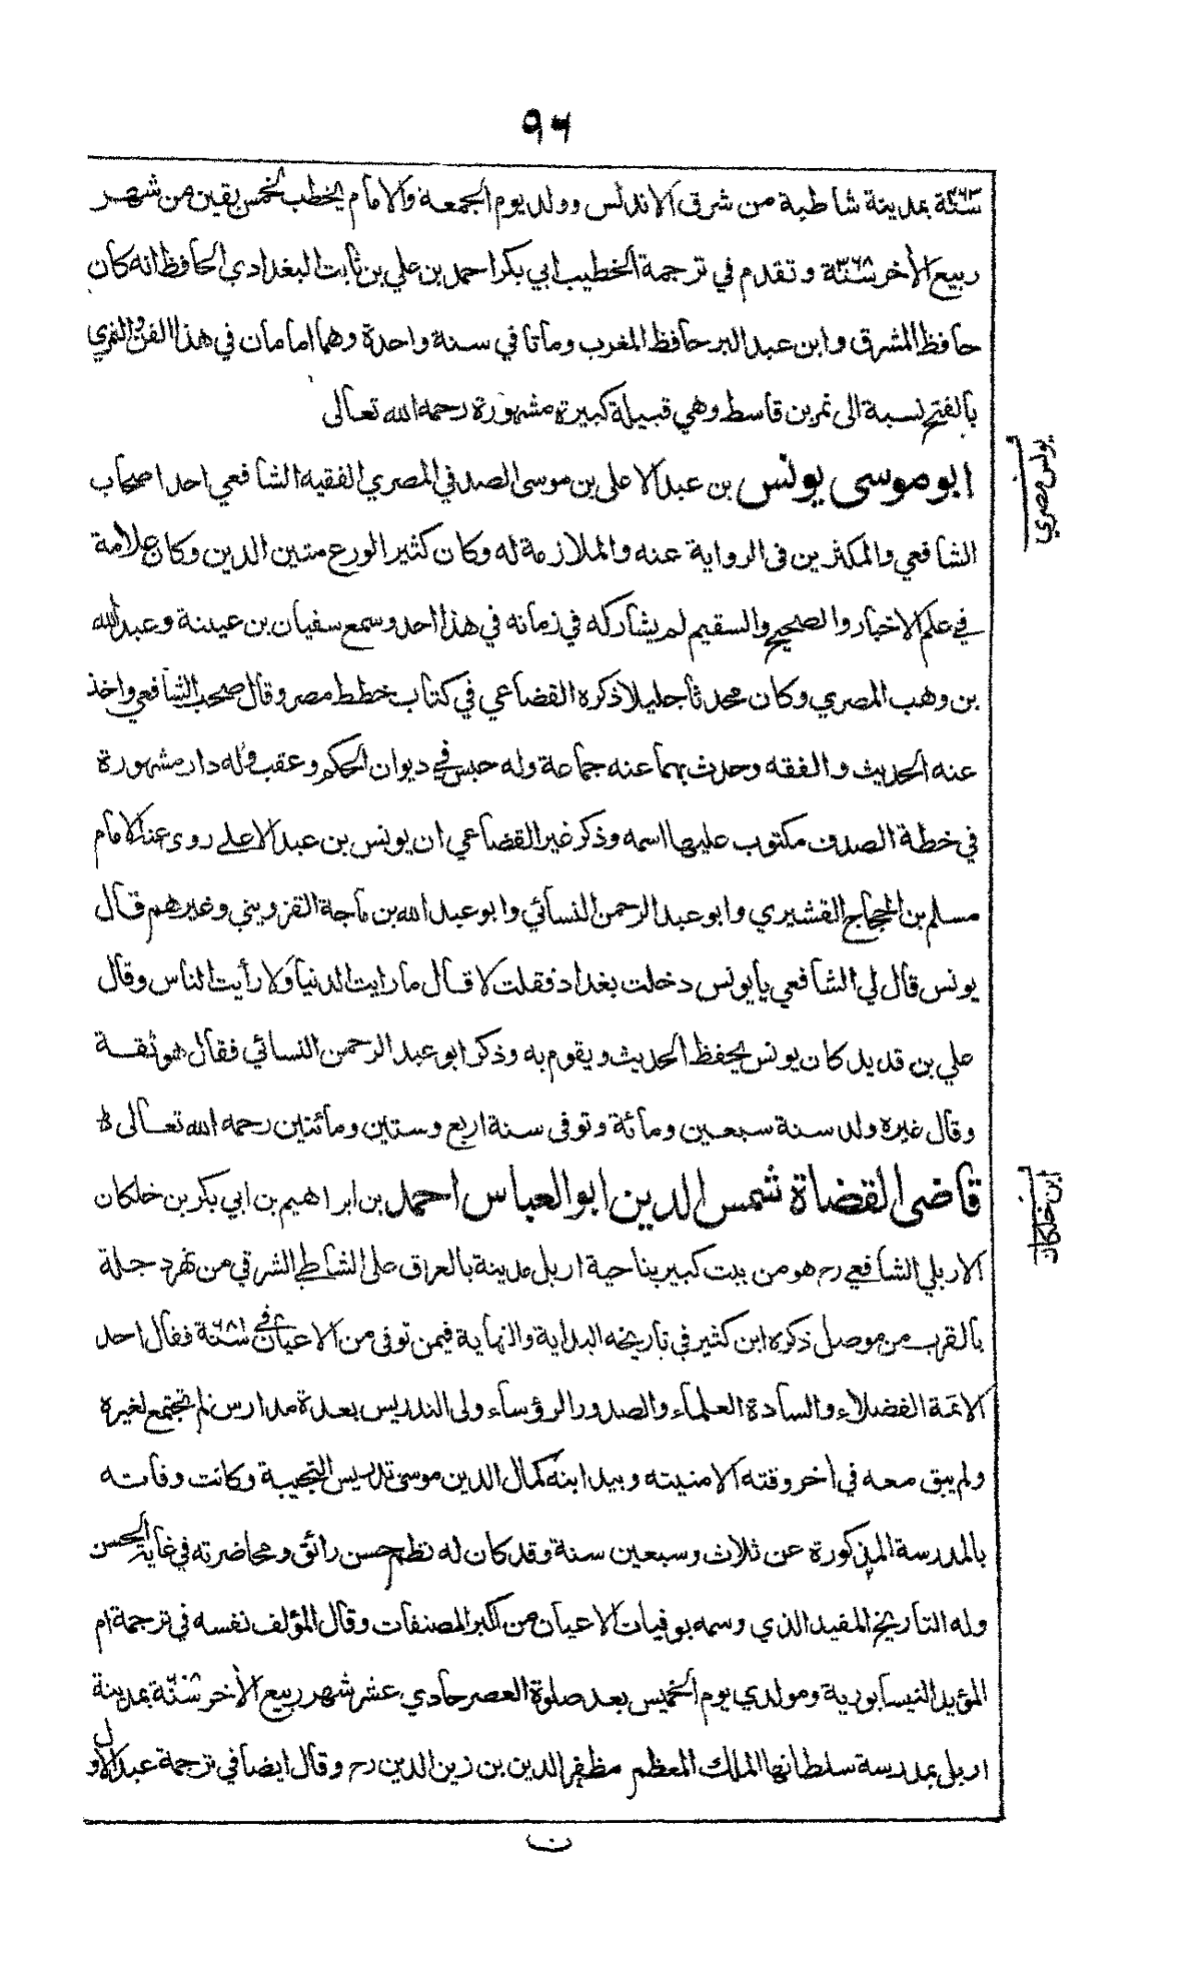 ٩٦
سنة ٤٦٣ بمدينة شاطبة من شرق الاندلس وولد يوم الجمعة والامام يخطب لخمس بقين من شهر
ربيع الاخر سنة ٣٦٨ وتقدم في ترجمة الخطيب ابي بكر احمد بن علي بن ثابت البغدادي الحافظ انه كان
حافظ المشرق وابن عبد البر حافظ المغرب وماتا في سنة واحدة وهما امامان في هذا الفن والنمري
بالفتح نسبة الى نمر بن قاسط وهي قبيلة كبيرة مشهورة رحمه الله تعالى
ابو موسى يونس بن عبد الاعلى بن موسى الصدفي المصري الفقيه الشافعي احد اصحاب
يونس مصري
الشافعي والمكثرين في الرواية عنه والملازمة له وكان كثير الورع متين الدين وكان علامة
في علم الاخبار والصحيح والسقيم لم يشاركه في زمانه في هذا احد وسمع سفيان بن عيينة وعبد الله
بن وهب المصري وكان محدثا جليلا ذكره القضاعي في كتاب خطط مصر وقال صحب الشافعي واخذ
عنه الحديث والفقه وحدث بهما عنه جماعة وله حبس في ديوان الحكم وعقب وله دار مشهورة
في خطة الصدف مكتوب عليها اسمه وذكر غير القضاعي ان يونس بن عبد الاعلى روى عنه الامام
مسلم بن الحجاج القشيري وابو عبد الرحمن النسائي وابو عبد الله بن ماجة القزويني وغيرهم قال
يونس قال لي الشافعي يا يونس دخلت بغداد فقلت لا قال ما رايت الدنيا ولا رأيت الناس وقال
علي بن قديد كان يونس يحفظ الحديث ويقوم به وذكر ابو عبد الرحمن النسائي فقال هو ثقة
وقال غيره ولد سنة سبعين ومائة وتوفى سنة اربع وستين ومائتين رحمه الله تعالى
قاضى القضاة شمس الدين ابو العباس احمد بن ابراهيم بن ابي بكر بن خلكان
ابن خلكان
الاربلي الشافعي رح هو من بيت كبير بناحية اربل مدينة بالعراق على الشاطي الشرقي من نهر دجلة
بالقرب من موصل ذكره ابن كثير في تاريخه البداية والنهاية فيمن توفى من الاعيان في سنة ٦٨١ فقال احد
الائمة الفضلاء والسادة العلماء والصدور الرؤساء ولى التدريس بعدة مدارس لم تجتمع لغيره
ولم يبق معه في اخر وقته الا منيته وبيد ابنه كمال الدين موسى تدريس النجيبة وكانت وفاته
بالمدرسة المذكورة عن ثلاث وسبعين سنة وقد كان له نظم حسن رائق ومحاضرته في غاية الحسن
وله التاريخ المفيد الذي وسمه بوفيات الاعيان من اكبر المصنفات وقال المؤلف نفسه في ترجمة ام
المؤيد النيسابورية ومولدي يوم الخميس بعد صلوة العصر حادي عشر شهر ربيع الاخر سنة ٦٠٨ بمدينة
اربل بمدرسة سلطانها الملك المعظم مظفر الدين بن زين الدين رح وقال ايضا في ترجمة عبد الاول
ن